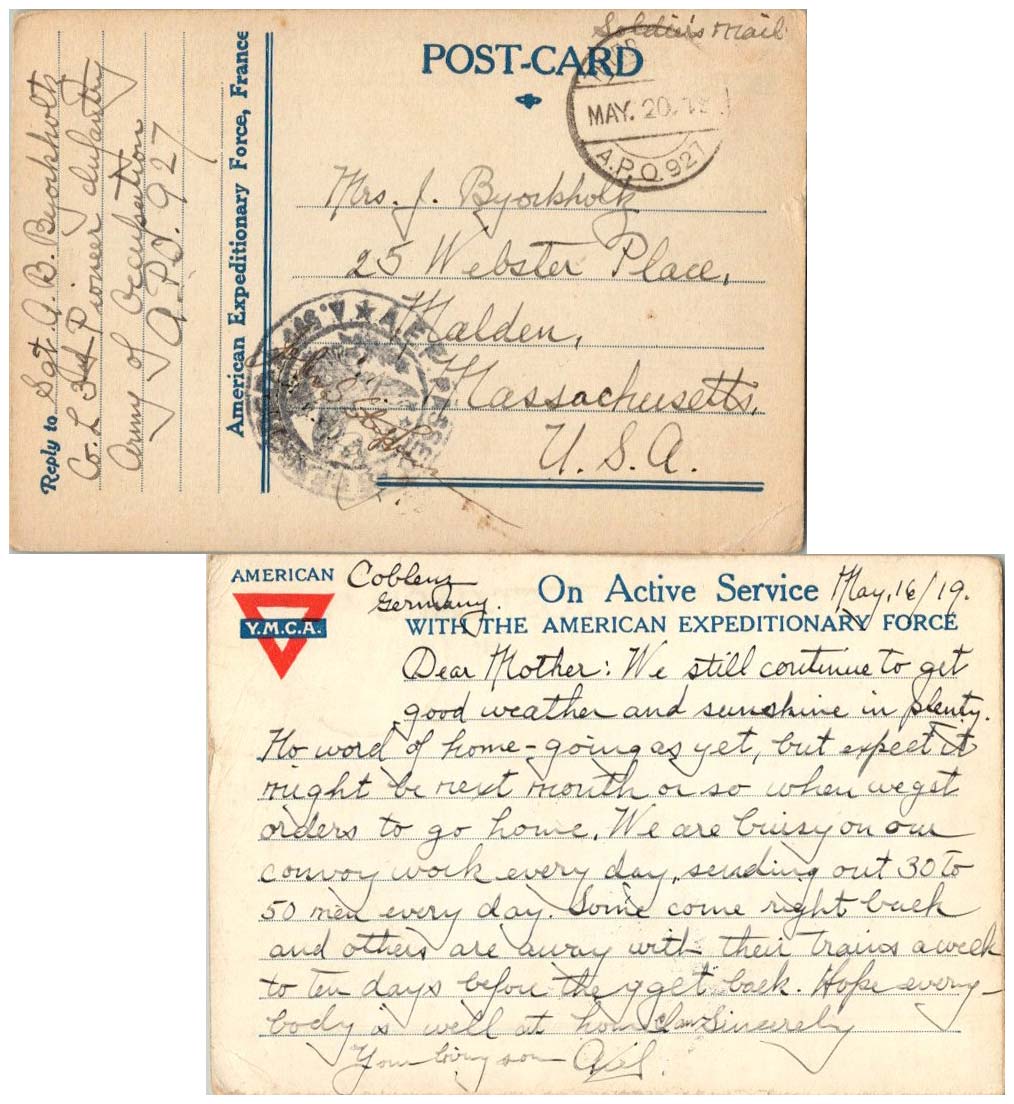 Soldier's Mail
POST-CARD
MAY. 20.
A.P.O. 927
Reply to Sgt. A. B. Byorkholtz
Co. L 3rd Pioneer Infantry
Army of Occupation
A.P.O. 927
American Expeditionary Force, France
Mrs. J. Byorkholtz
25 Webster Place,
Malden,
Massachusetts,
U. S. A.
A.E.F. PASSED
AMERICAN
Y.M.C.A.
Coblenz
Germany.
On Active Service May, 16/19.
WITH THE AMERICAN EXPEDITIONARY FORCE
Dear Mother: We still continue to get
good weather and sunshine in plenty.
No word of home-going as yet, but expect it
might be next month or so when we get
orders to go home. We are busy on our
convoy work every day, sending out 30 to
50 men every day. Some come right back
and others are away with their trains a week
to ten days before they get back. Hope every-
body is well at home Sincerely
Your loving son Axel.